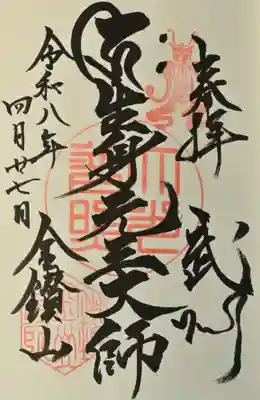 奉拝
武州
生身元三大師
金鑚山
令和八年
四月廿七日